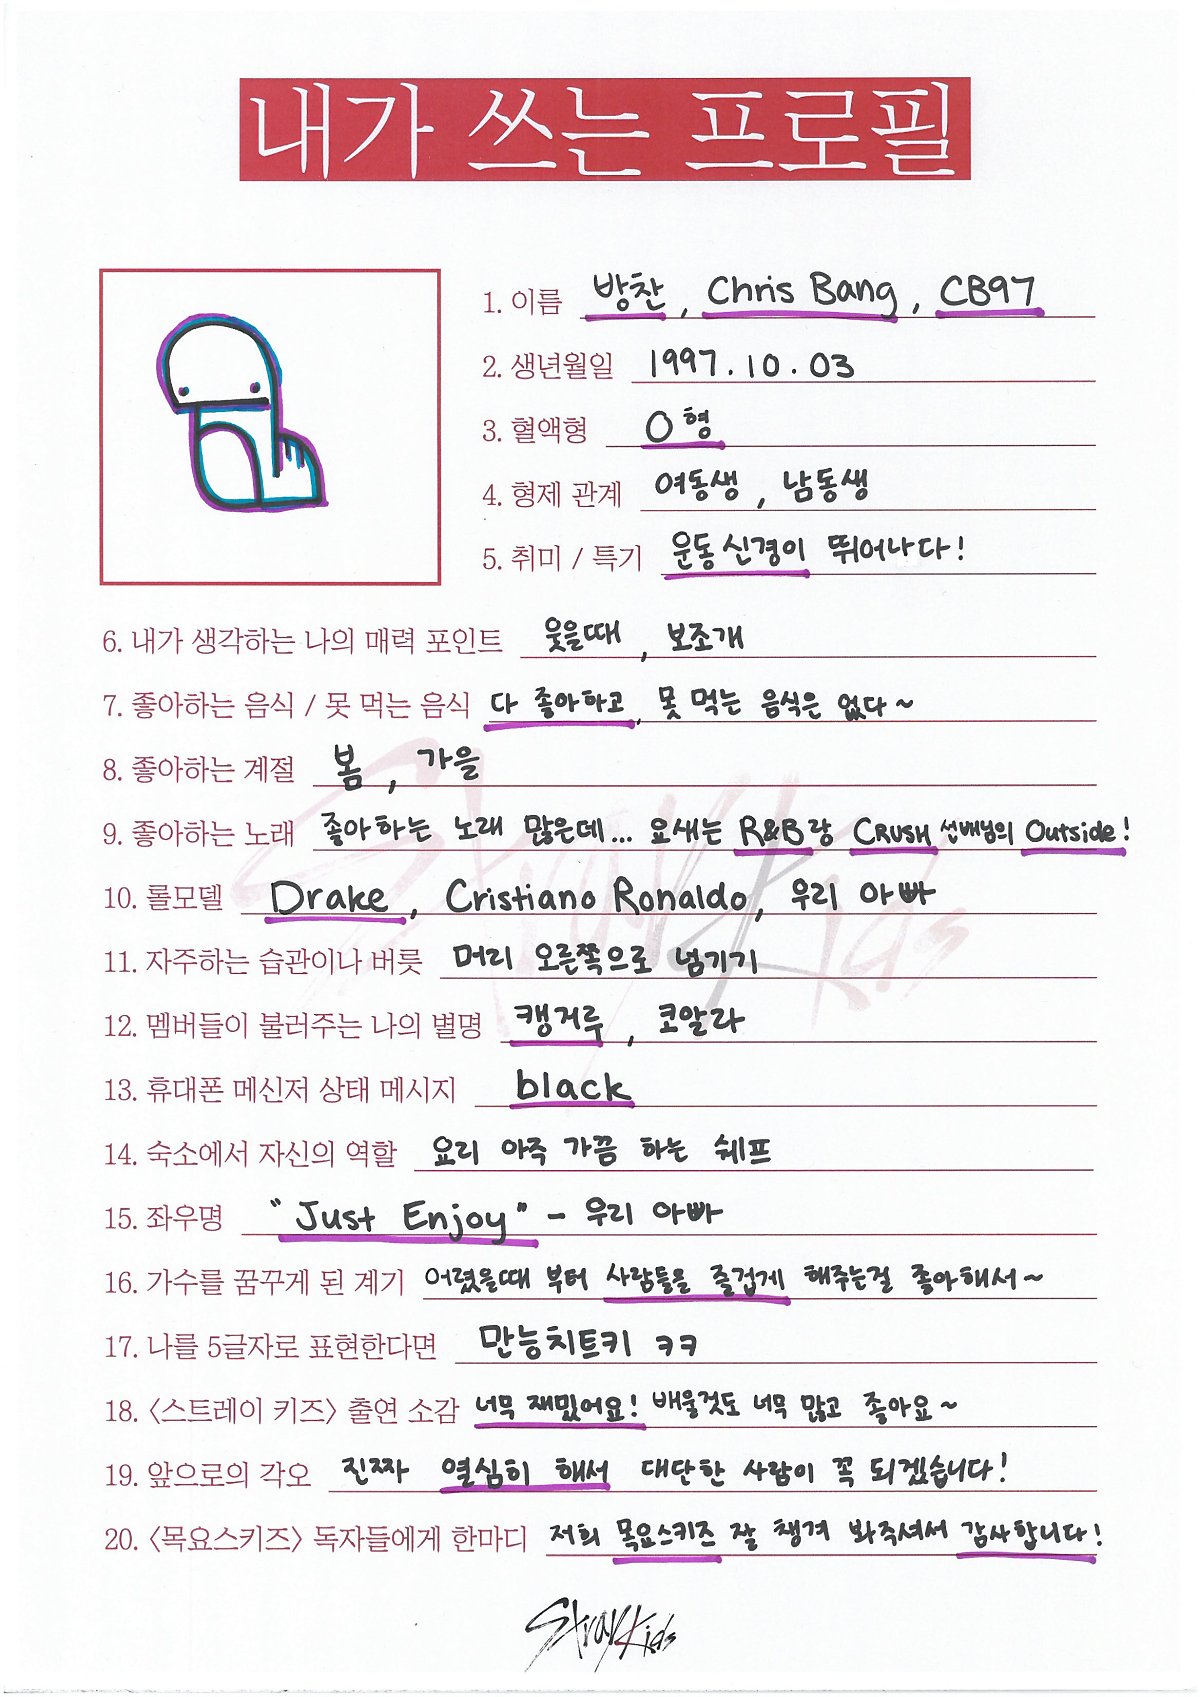 내가 쓰는 프로필
1. 이름 방찬, Chris Bang, CB97
2. 생년월일 1997.10.03
3. 혈액형 O형
4. 형제 관계 여동생, 남동생
5. 취미 / 특기 운동신경이 뛰어나다!
6. 내가 생각하는 나의 매력 포인트 웃을때, 보조개
7. 좋아하는 음식 / 못 먹는 음식 다 좋아하고, 못 먹는 음식은 없다~
8. 좋아하는 계절 봄, 가을
9. 좋아하는 노래 좋아하는 노래 많은데... 요새는 R&B랑 CRUSH 선배님의 Outside!
10. 롤모델 Drake, Cristiano Ronaldo, 우리 아빠
11. 자주하는 습관이나 버릇 머리 오른쪽으로 넘기기
12. 멤버들이 불러주는 나의 별명 캥거루, 코알라
13. 휴대폰 메신저 상태 메시지 black
14. 숙소에서 자신의 역할 요리 아주 가끔 하는 쉐프
15. 좌우명 "Just Enjoy" - 우리 아빠
16. 가수를 꿈꾸게 된 계기 어렸을때 부터 사람들을 즐겁게 해주는걸 좋아해서~
17. 나를 5글자로 표현한다면 만능치트키 ㅋㅋ
18. <스트레이 키즈> 출연 소감 너무 재밌어요! 배울것도 너무 많고 좋아요~
19. 앞으로의 각오 진짜 열심히 해서 대단한 사람이 꼭 되겠습니다!
20. <목요스키즈> 독자들에게 한마디 저희 목요스키즈 잘 챙겨 봐주셔서 감사합니다!
Stray Kids